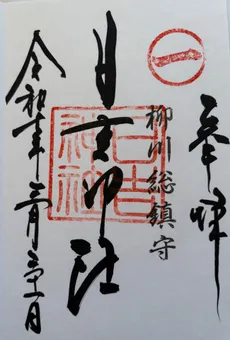 奉拝
一
柳川総鎮守
日吉神社
日吉
神社
令和年月日